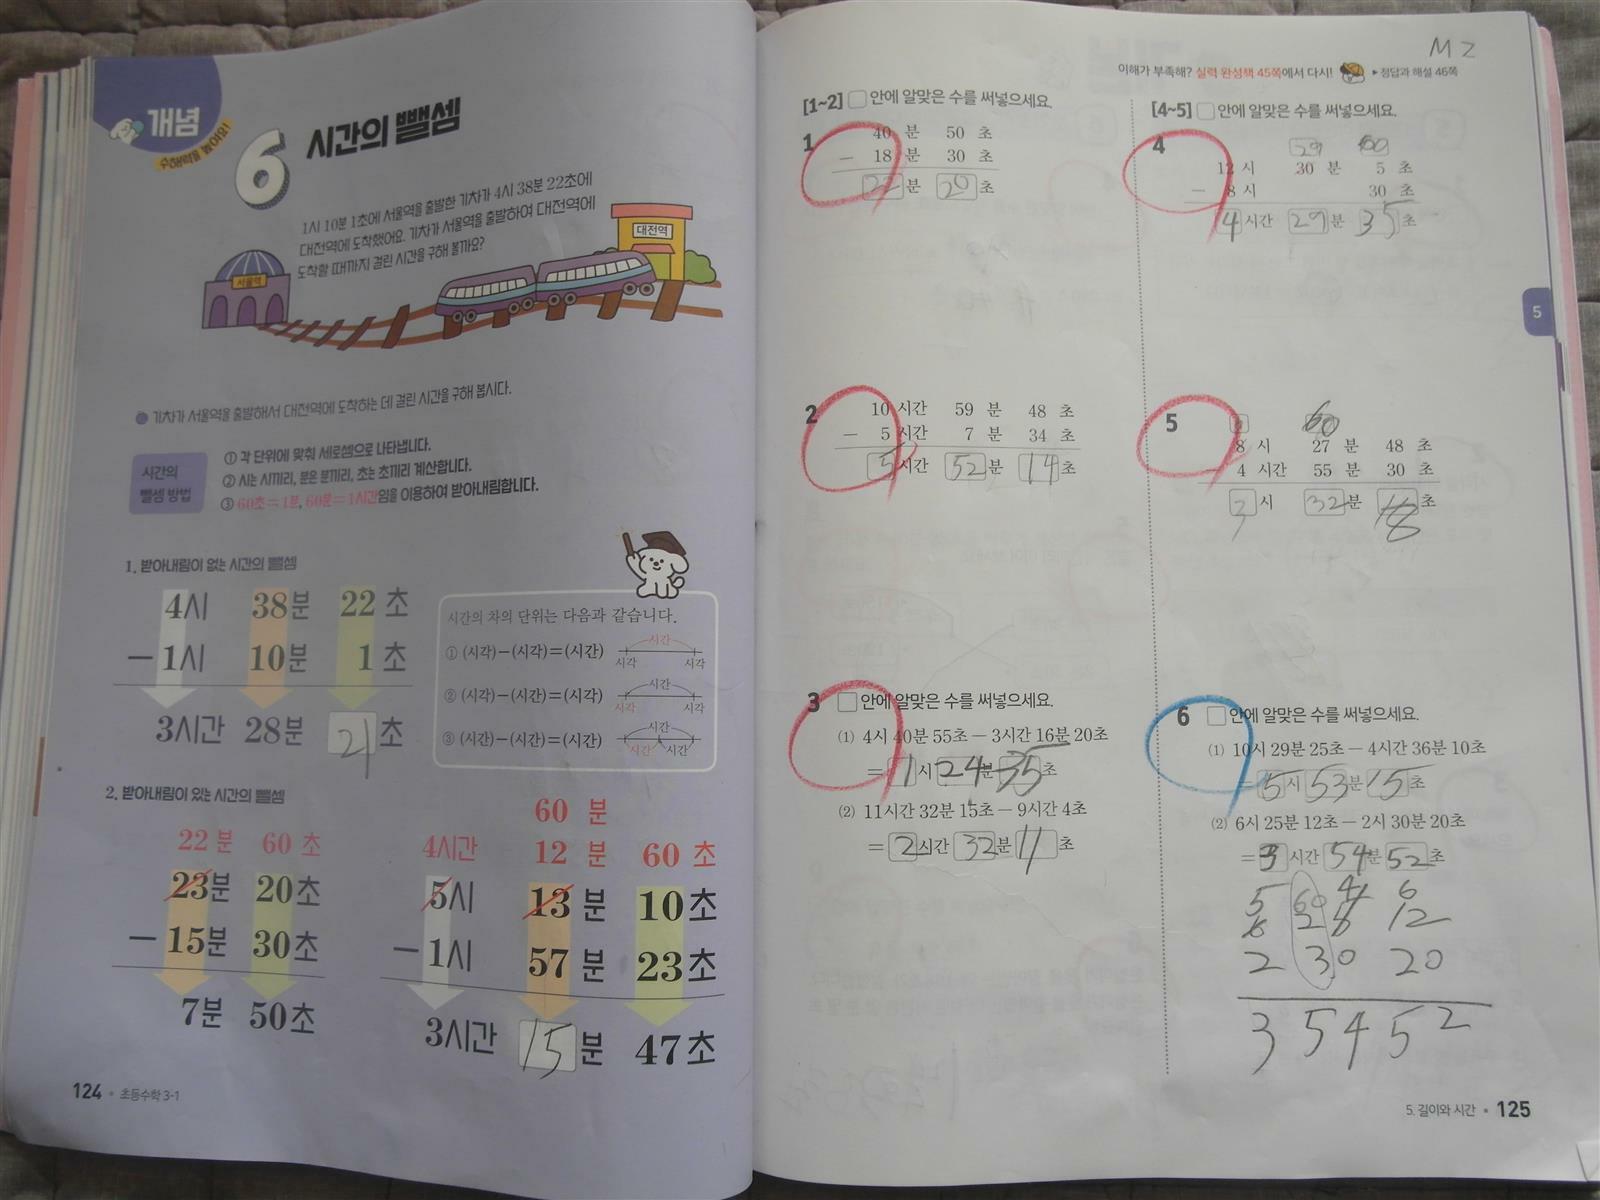 개념
수해력을 높여요!
6 시간의 뺄셈
1시 10분 1초에 서울역을 출발한 기차가 4시 38분 22초에
대전역에 도착했어요. 기차가 서울역을 출발하여 대전역에
도착할 때까지 걸린 시간을 구해 볼까요?
서울역
대전역
기차가 서울역을 출발해서 대전역에 도착하는 데 걸린 시간을 구해 봅시다.
시간의
뺄셈 방법
① 각 단위에 맞춰 세로셈으로 나타냅니다.
② 시는 시끼리, 분은 분끼리, 초는 초끼리 계산합니다.
③ 60초=1분, 60분=1시간임을 이용하여 받아내림합니다.
1. 받아내림이 없는 시간의 뺄셈
4시 38분 22초
-1시 10분 1초
3시간 28분 21초
시간의 차의 단위는 다음과 같습니다.
① (시각)-(시각)=(시간)
시간
시각 시각
② (시각)-(시간)=(시각)
시간
시각 시각
③ (시간)-(시간)=(시간)
시간
시간 시간
2. 받아내림이 있는 시간의 뺄셈
22분 60초
23분 20초
-15분 30초
7분 50초
60분
4시간 12분 60초
5시 13분 10초
-1시 57분 23초
3시간 15분 47초
124 • 초등수학 3-1
M2
이해가 부족해? 실력 완성책 45쪽에서 다시! ▸정답과 해설 46쪽
[1~2] □ 안에 알맞은 수를 써넣으세요.
1
40 분 50 초
- 18 분 30 초
22 분 20 초
2
10 시간 59 분 48 초
- 5 시간 7 분 34 초
5 시간 52 분 14 초
3 □ 안에 알맞은 수를 써넣으세요.
(1) 4시 40분 55초-3시간 16분 20초
= 1 시 24 분 35 초
(2) 11시간 32분 15초-9시간 4초
= 2 시간 32 분 11 초
[4~5] □ 안에 알맞은 수를 써넣으세요.
4
29 60
12 시 30 분 5 초
- 8 시 30 초
4 시간 29 분 35 초
5
60
8 시 27 분 48 초
- 4 시간 55 분 30 초
3 시 32 분 18 초
6 □ 안에 알맞은 수를 써넣으세요.
(1) 10시 29분 25초-4시간 36분 10초
= 5 시 53 분 15 초
(2) 6시 25분 12초-2시 30분 20초
= 3 시간 54 분 52 초
2 30 20
3 54 52
5
5. 길이와 시간 • 125